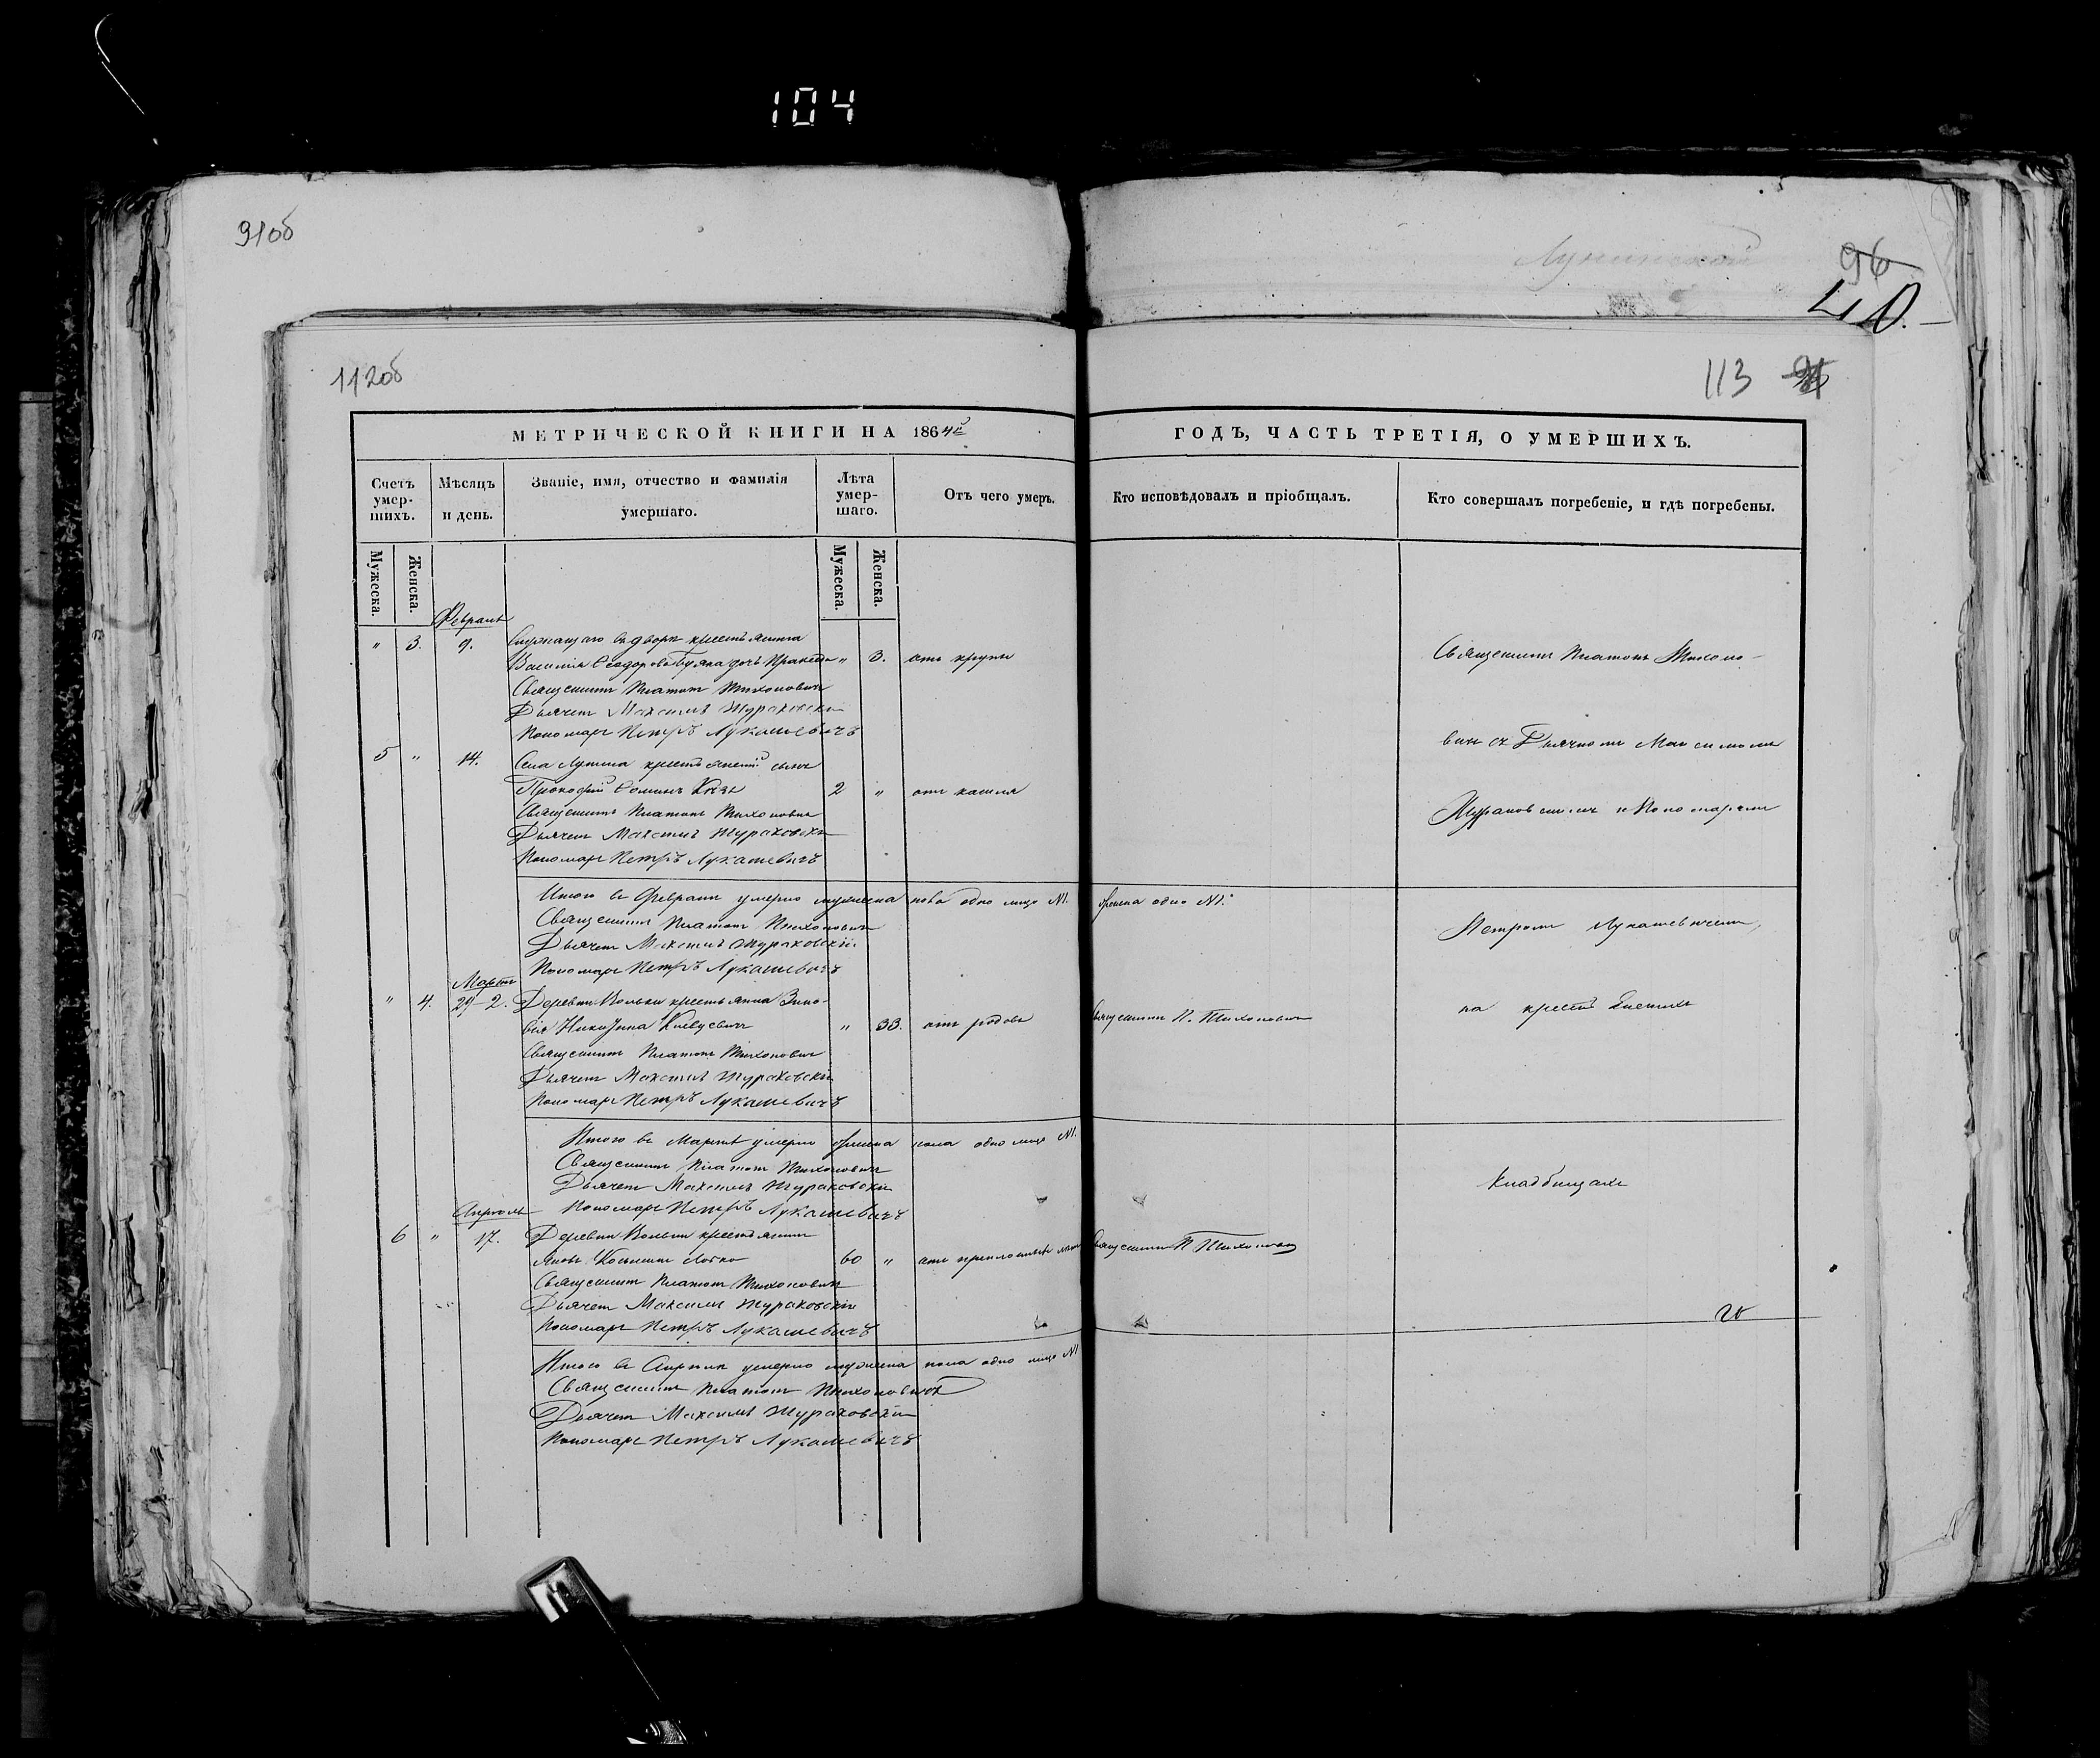 104
91об
96
40.
112об
113
МЕТРИЧЕСКОЙ КНИГИ НА 1864й
ГОДЪ, ЧАСТЬ ТРЕТІЯ, О УМЕРШИХЪ.
Счетъ умер-
шихъ.
Мѣсяцъ
и день.
Званіе, имя, отчество и фамилія
умершаго.
Лѣта
умер-
шаго.
Отъ чего умеръ.
Кто исповѣдовалъ и пріобщалъ.
Кто совершалъ погребеніе, и гдѣ погребены.
Мужеска.
Женска.
Мужеска.
Женска.
Февраль
" 3. 9.
крестьянина
Василія Ѳеодорова дочь " 3. отъ крупы
Священникъ Платонъ Тихоновичъ
Дьячекъ Максимъ Жураковскій
Пономарь Петръ Лукашевичъ
5 " 14. Села Лунина крестьянскій сынъ
Прокофій 2 " отъ кашля
Священникъ Платонъ Тихоновичъ
Дьячекъ Максимъ Жураковскій
Пономарь Петръ Лукашевичъ
Итого въ Февралѣ умерло мужеска пола одно лице №1. женска одно №1.
Священникъ Платонъ Тихоновичъ
Дьячекъ Максимъ Жураковскій
Пономарь Петръ Лукашевичъ
Мартъ
" 4. 29-2. Деревни Вольки крестьянка Зино-
вія " 33. отъ родовъ Священникъ П. Тихоновичъ
Священникъ Платонъ Тихоновичъ
Дьячекъ Максимъ Жураковскій
Пономарь Петръ Лукашевичъ
Итого въ Мартѣ умерло женска пола одно лице №1.
Священникъ Платонъ Тихоновичъ
Дьячекъ Максимъ Жураковскій
Пономарь Петръ Лукашевичъ
Апрель
6 " 17. Деревни Вольки крестьянинъ
60 " отъ Священникъ П. Тихоновичъ
Священникъ Платонъ Тихоновичъ
Дьячекъ Максимъ Жураковскій
Пономарь Петръ Лукашевичъ
Итого въ Апрелѣ умерло мужеска пола одно лице №1
Священникъ Платонъ Тихоновичъ
Дьячекъ Максимъ Жураковскій
Пономарь Петръ Лукашевичъ
Священникъ Платонъ Тихоно-
вичъ съ Дьячкомъ Максимомъ
Жураковскимъ и Пономаремъ
Петромъ Лукашевичемъ,
на крестьянскихъ
кладбищахъ